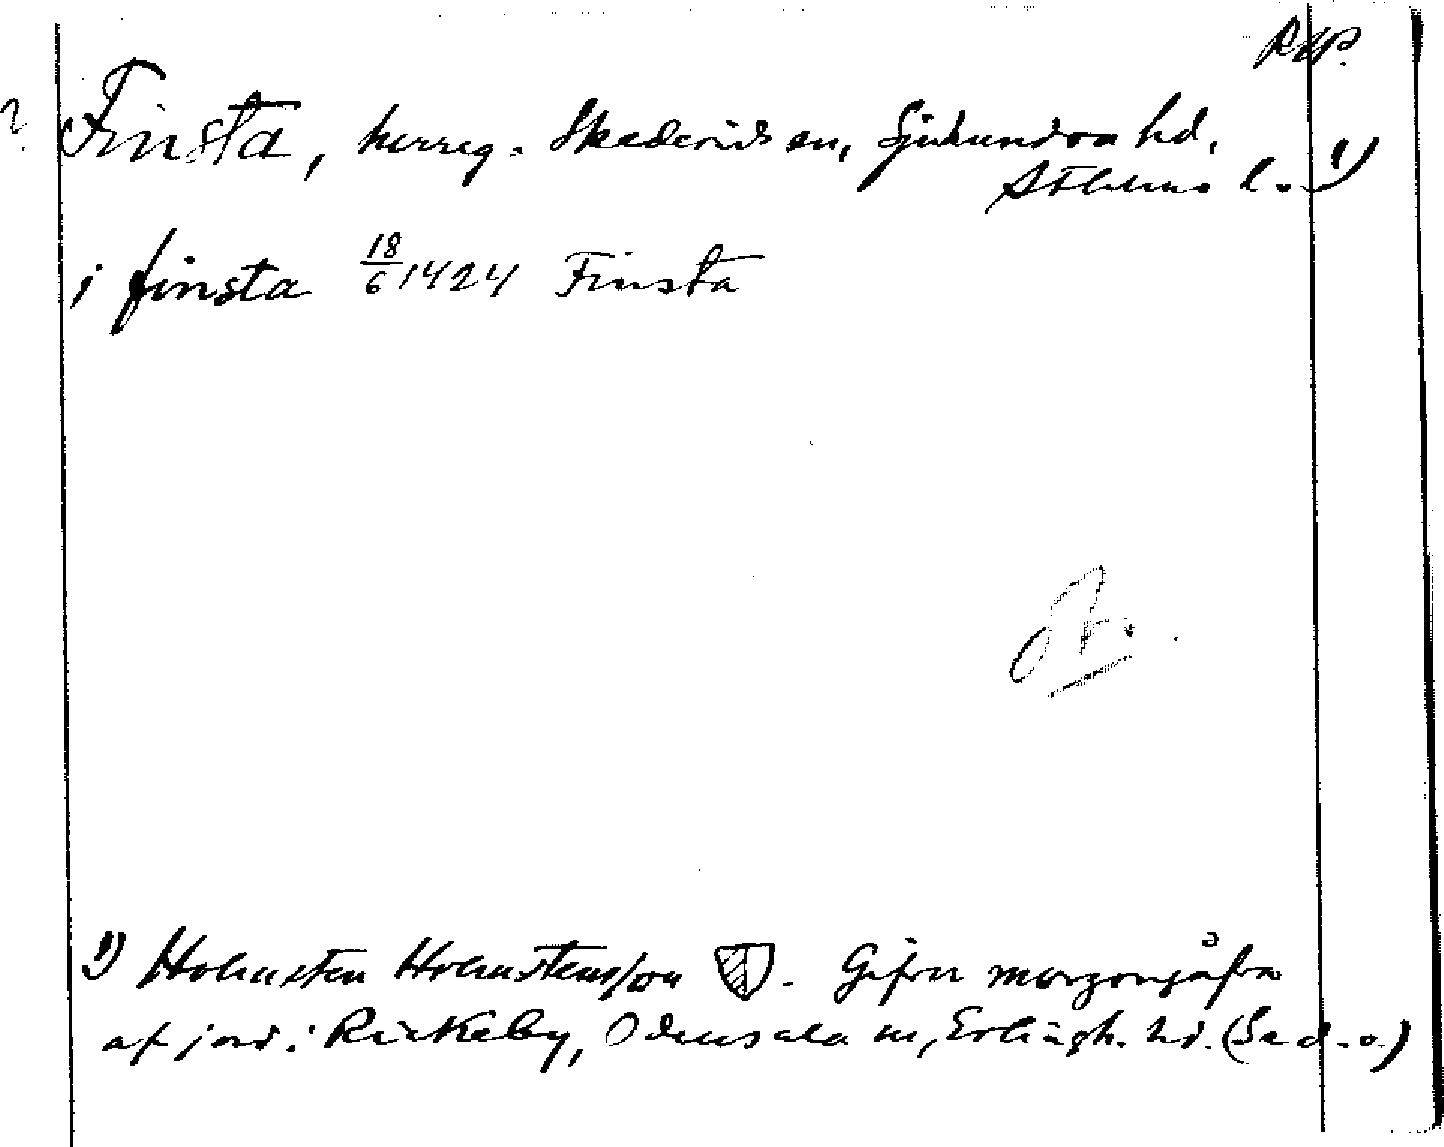 Rep.
Finsta, herreg. Skederids sn, Sjuhundra hd,
Sthlms l. 1)
i finsta 18/6 1424 Finsta
1) Holmsten Holmstensson. Gifver morgongåfva
af jord i Rickeby, Odensala sn, Erlingh. hd. (Se d. o.)